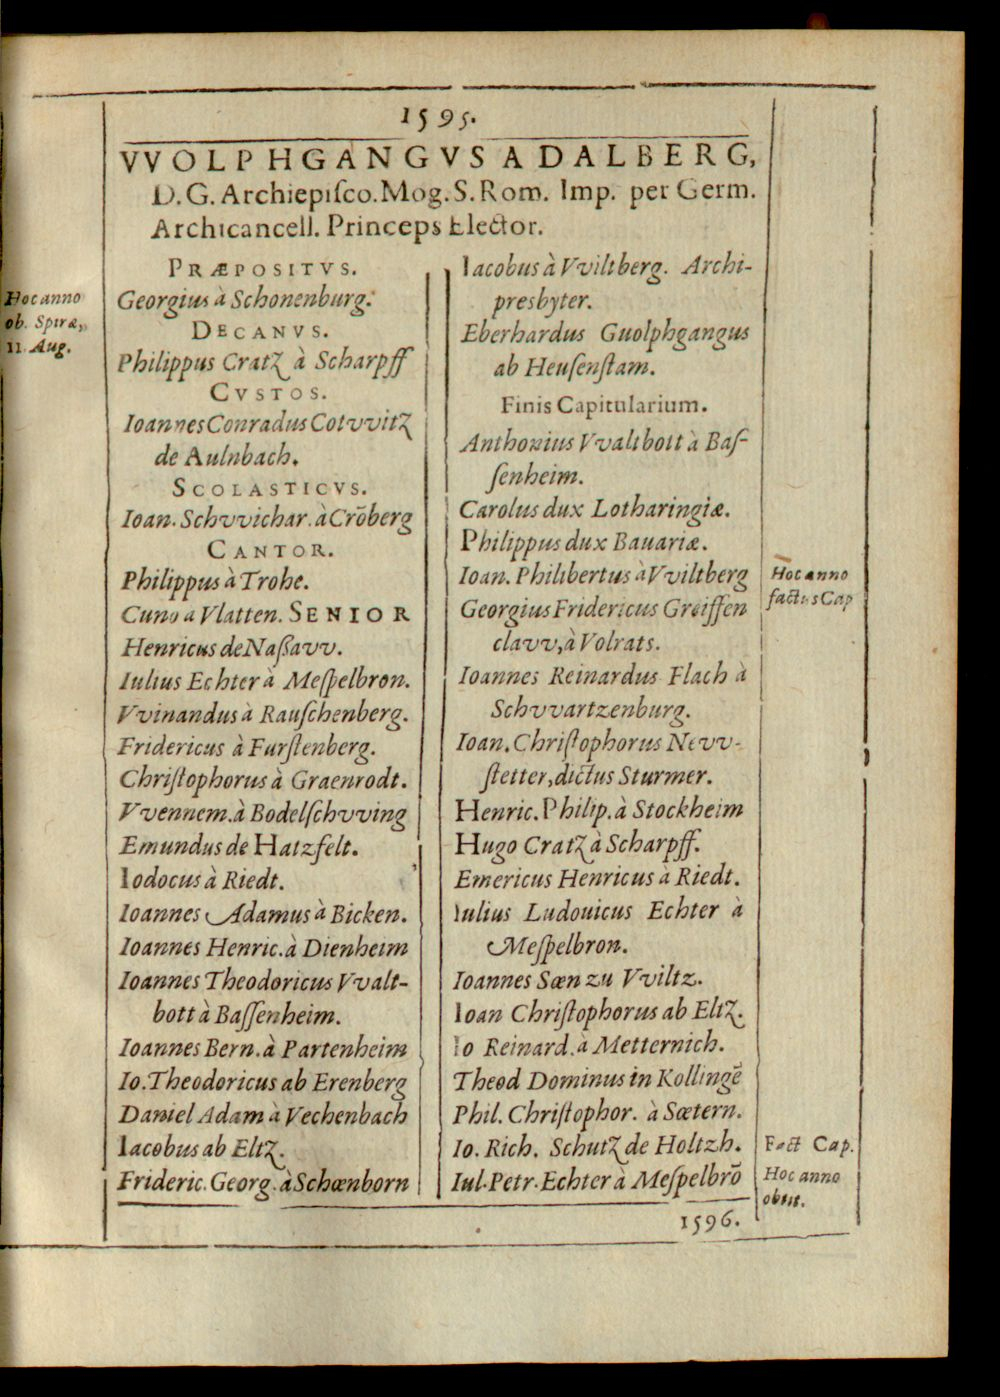 1595.
VVOLPHGANGVS ADALBERG,
D.G. Archiepiſco. Mog. S. Rom. Imp. per Germ.
Archicancell. Princeps Elector.
PRÆPOSITVS.
Hoc anno
ob. Spiræ,
11. Aug.
Georgius à Schonenburg.
DECANVS.
Philippus Cratz à Scharpff
CVSTOS.
Ioannes Conradus Cotvvitz
de Aulnbach.
SCOLASTICVS.
Ioan. Schvvichar. à Crōberg
CANTOR.
Philippus à Trohe.
Cuno a Vlatten. SENIOR
Henricus de Naßavv.
Iulius Echter à Meſpelbron.
Vvinandus à Rauſchenberg.
Fridericus à Furſtenberg.
Chriſtophorus à Graenrodt.
Vvennem. à Bodelſchvving
Emundus de Hatzfelt.
Iodocus à Riedt.
Ioannes Adamus à Bicken.
Ioannes Henric. à Dienheim
Ioannes Theodoricus Vvalt-
bott à Baſſenheim.
Ioannes Bern. à Partenheim
Io. Theodoricus ab Erenberg
Daniel Adam à Vechenbach
Iacobus ab Eltz.
Frideric. Georg. à Schœnborn
Iacobus à Vviltberg. Archi-
presbyter.
Eberhardus Guolphgangus
ab Heuſenſtam.
Finis Capitularium.
Anthonius Vvaltbott à Baſ-
ſenheim.
Carolus dux Lotharingiæ.
Philippus dux Bauariæ.
Ioan. Philibertus à Vviltberg
Hoc anno
factus Cap
Georgius Fridericus Greiffen
clavv, à Volrats.
Ioannes Reinardus Flach à
Schvvartzenburg.
Ioan. Chriſtophorus Nevv-
ſtetter, dictus Sturmer.
Henric. Philip. à Stockheim
Hugo Cratz à Scharpff.
Emericus Henricus à Riedt.
Iulius Ludouicus Echter à
Meſpelbron.
Ioannes Sœn zu Vviltz.
Ioan Chriſtophorus ab Eltz.
Io Reinard. à Metternich.
Theod Dominus in Kollingē
Phil. Chriſtophor. à Sœtern.
Io. Rich. Schutz de Holtzh.
Fact Cap.
Iul. Petr. Echter à Meſpelbrō
Hoc anno
obiit.
1596.